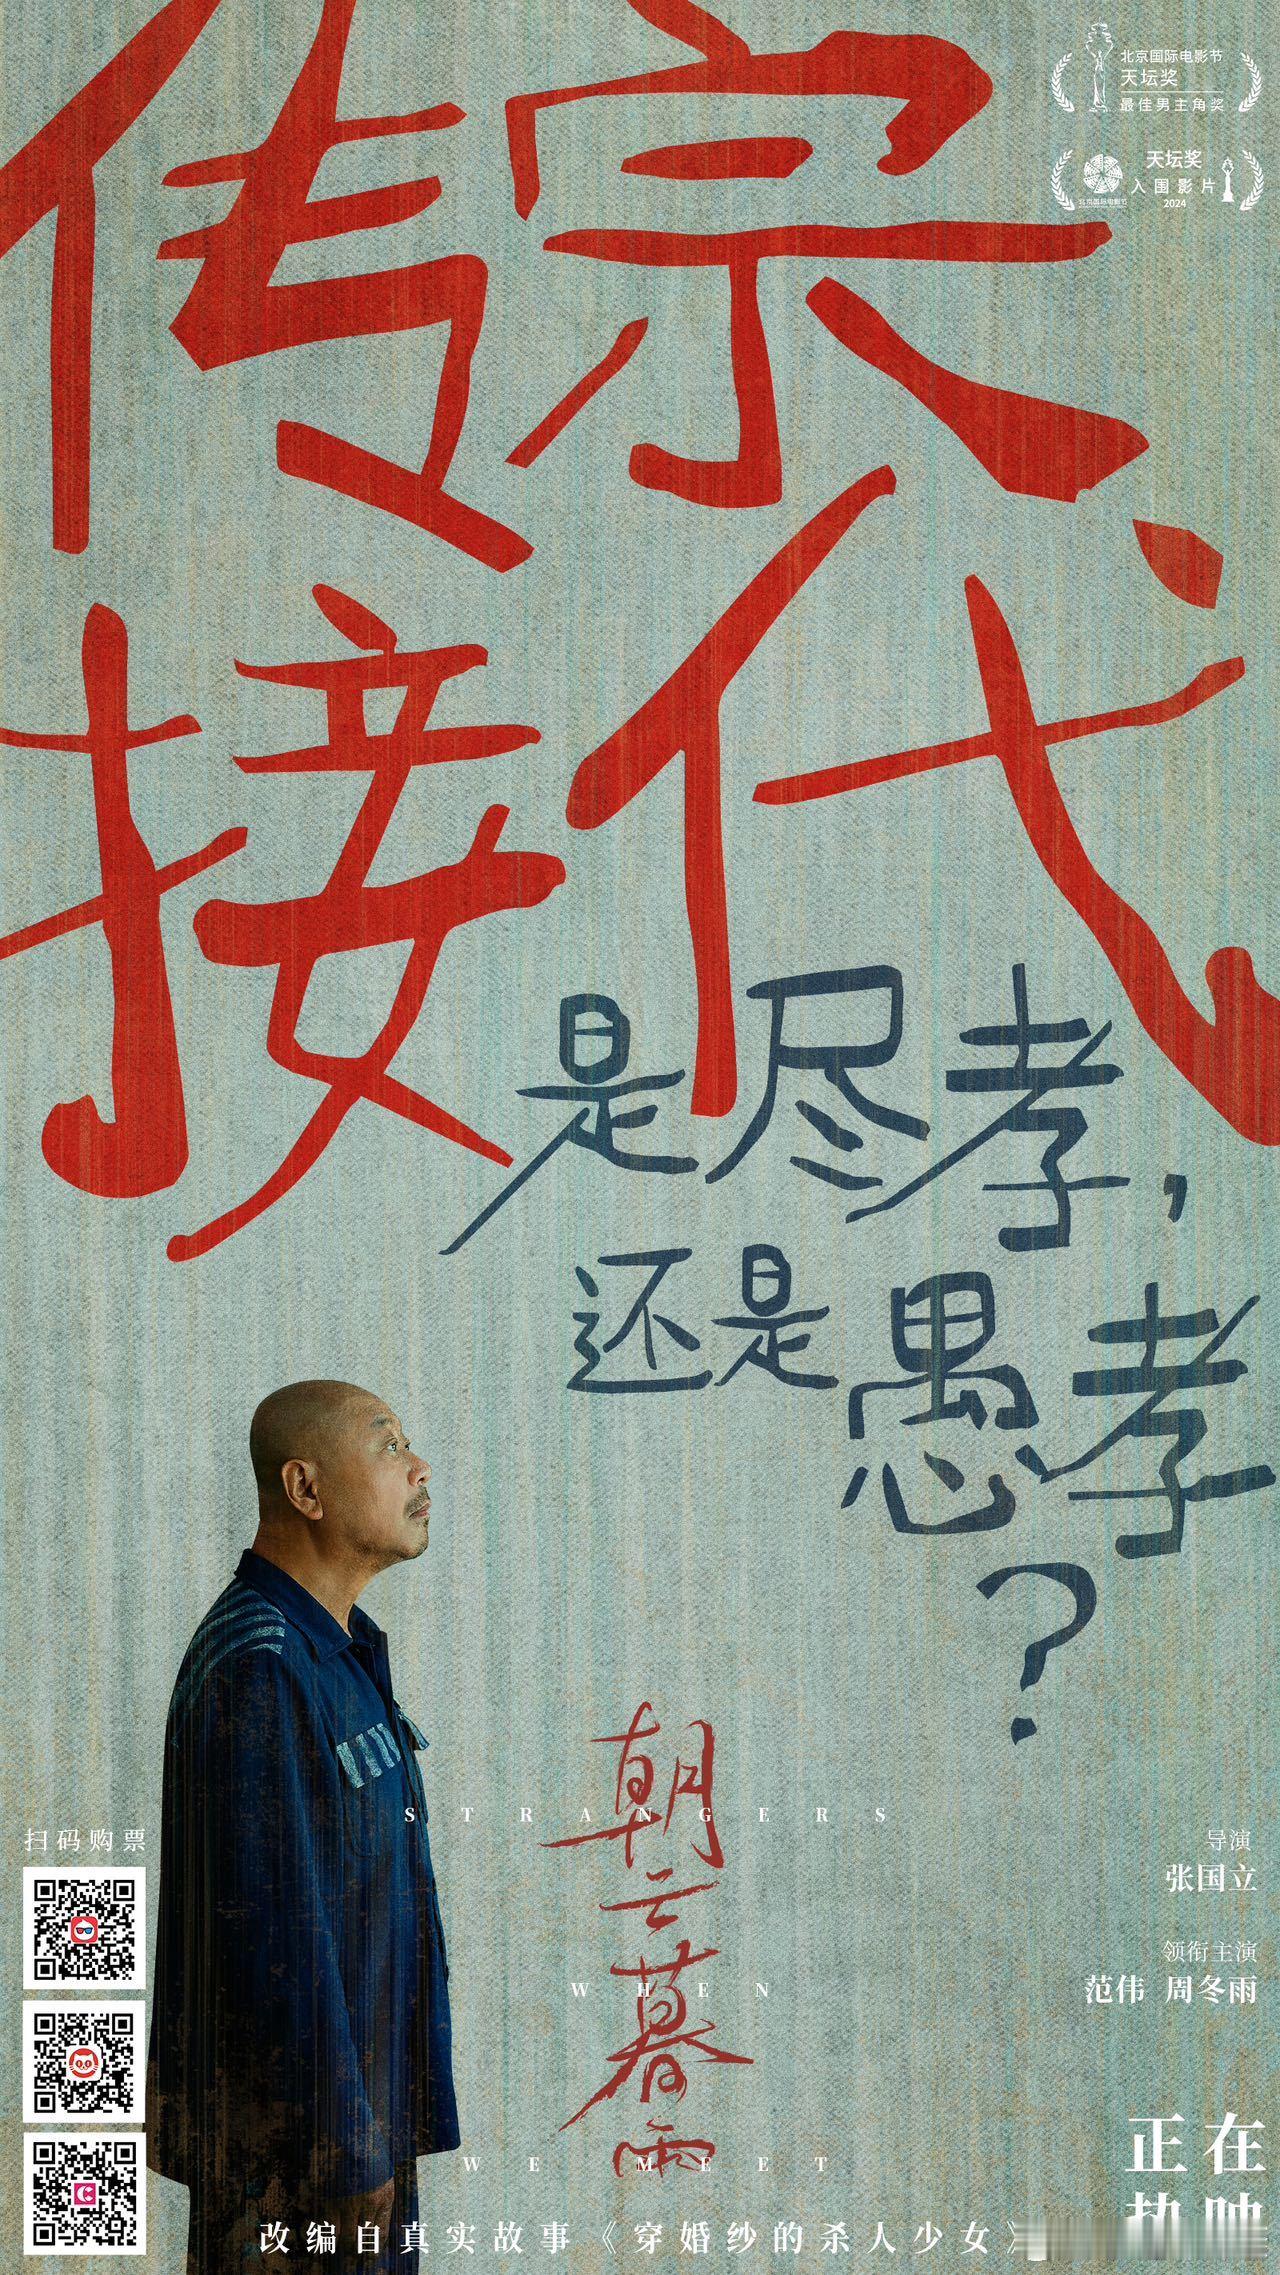 北京国际电影节
天坛奖
最佳男主角奖
天坛奖
入围影片
2024
北京国际电影节
传宗
接代
是尽孝，
还是愚孝
？
朝云暮雨
STRANGERS
WHEN
WE MEET
扫码购票
导演
张国立
领衔主演
范伟 周冬雨
正在
热映
改编自真实故事《穿婚纱的杀人少女》